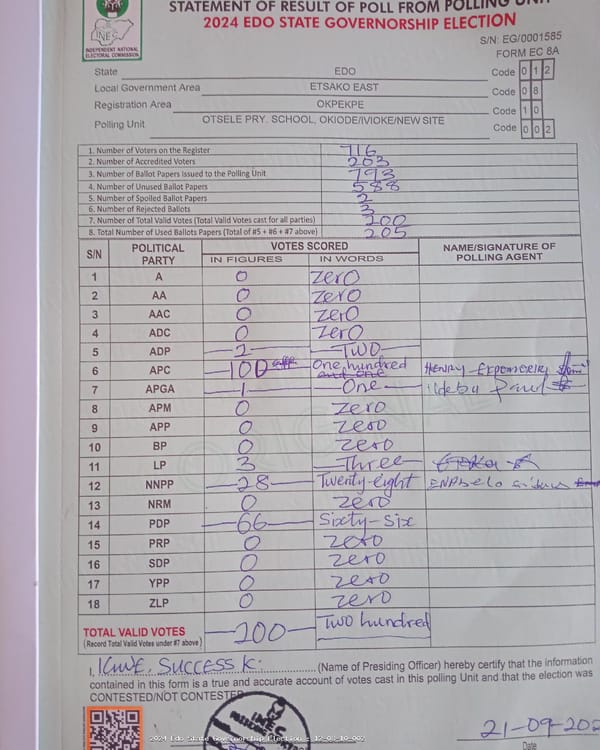 STATEMENT OF RESULT OF POLL FROM POLLING UNIT
2024 EDO STATE GOVERNORSHIP ELECTION
INEC
INDEPENDENT NATIONAL ELECTORAL COMMISSION
S/N: EG/0001585
FORM EC 8A
State EDO Code 0 1 2
Local Government Area ETSAKO EAST Code 0 8
Registration Area OKPEKPE Code 1 0
Polling Unit OTSELE PRY. SCHOOL, OKIODE/IVIOKE/NEW SITE Code 0 0 2
1. Number of Voters on the Register 716
2. Number of Accredited Voters 203
3. Number of Ballot Papers Issued to the Polling Unit 793
4. Number of Unused Ballot Papers 588
5. Number of Spoiled Ballot Papers 2
6. Number of Rejected Ballots 3
7. Number of Total Valid Votes (Total Valid Votes cast for all parties) 200
8. Total Number of Used Ballots Papers (Total of #5 + #6 + #7 above) 205
S/N POLITICAL PARTY VOTES SCORED NAME/SIGNATURE OF POLLING AGENT
IN FIGURES IN WORDS
1 A 0 zero
2 AA 0 zero
3 AAC 0 zero
4 ADC 0 zero
5 ADP 2 Two
6 APC 100 One hundred and one HENRY
7 APGA 1 One
8 APM 0 zero
9 APP 0 zero
10 BP 0 zero
11 LP 3 Three
12 NNPP 28 Twenty-eight
13 NRM 0 zero
14 PDP 66 Sixty-Six
15 PRP 0 zero
16 SDP 0 zero
17 YPP 0 zero
18 ZLP 0 zero
TOTAL VALID VOTES 200 Two hundred
(Record Total Valid Votes under #7 above)
I, SUCCESS K. (Name of Presiding Officer) hereby certify that the information
contained in this form is a true and accurate account of votes cast in this polling Unit and that the election was
CONTESTED/NOT CONTESTED
21-09-202
Date
2024 Edo State Governorship Election - 12-08-10-002